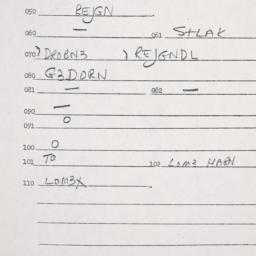 050 REJGN
060 — 061 S+LAK
070 ) DROBN3 ) REJGNDL
080 G3DORN
081 — 082 —
090 —
091 O
100 O
101 TO 200 LOM3 HARN
110 LOM3X